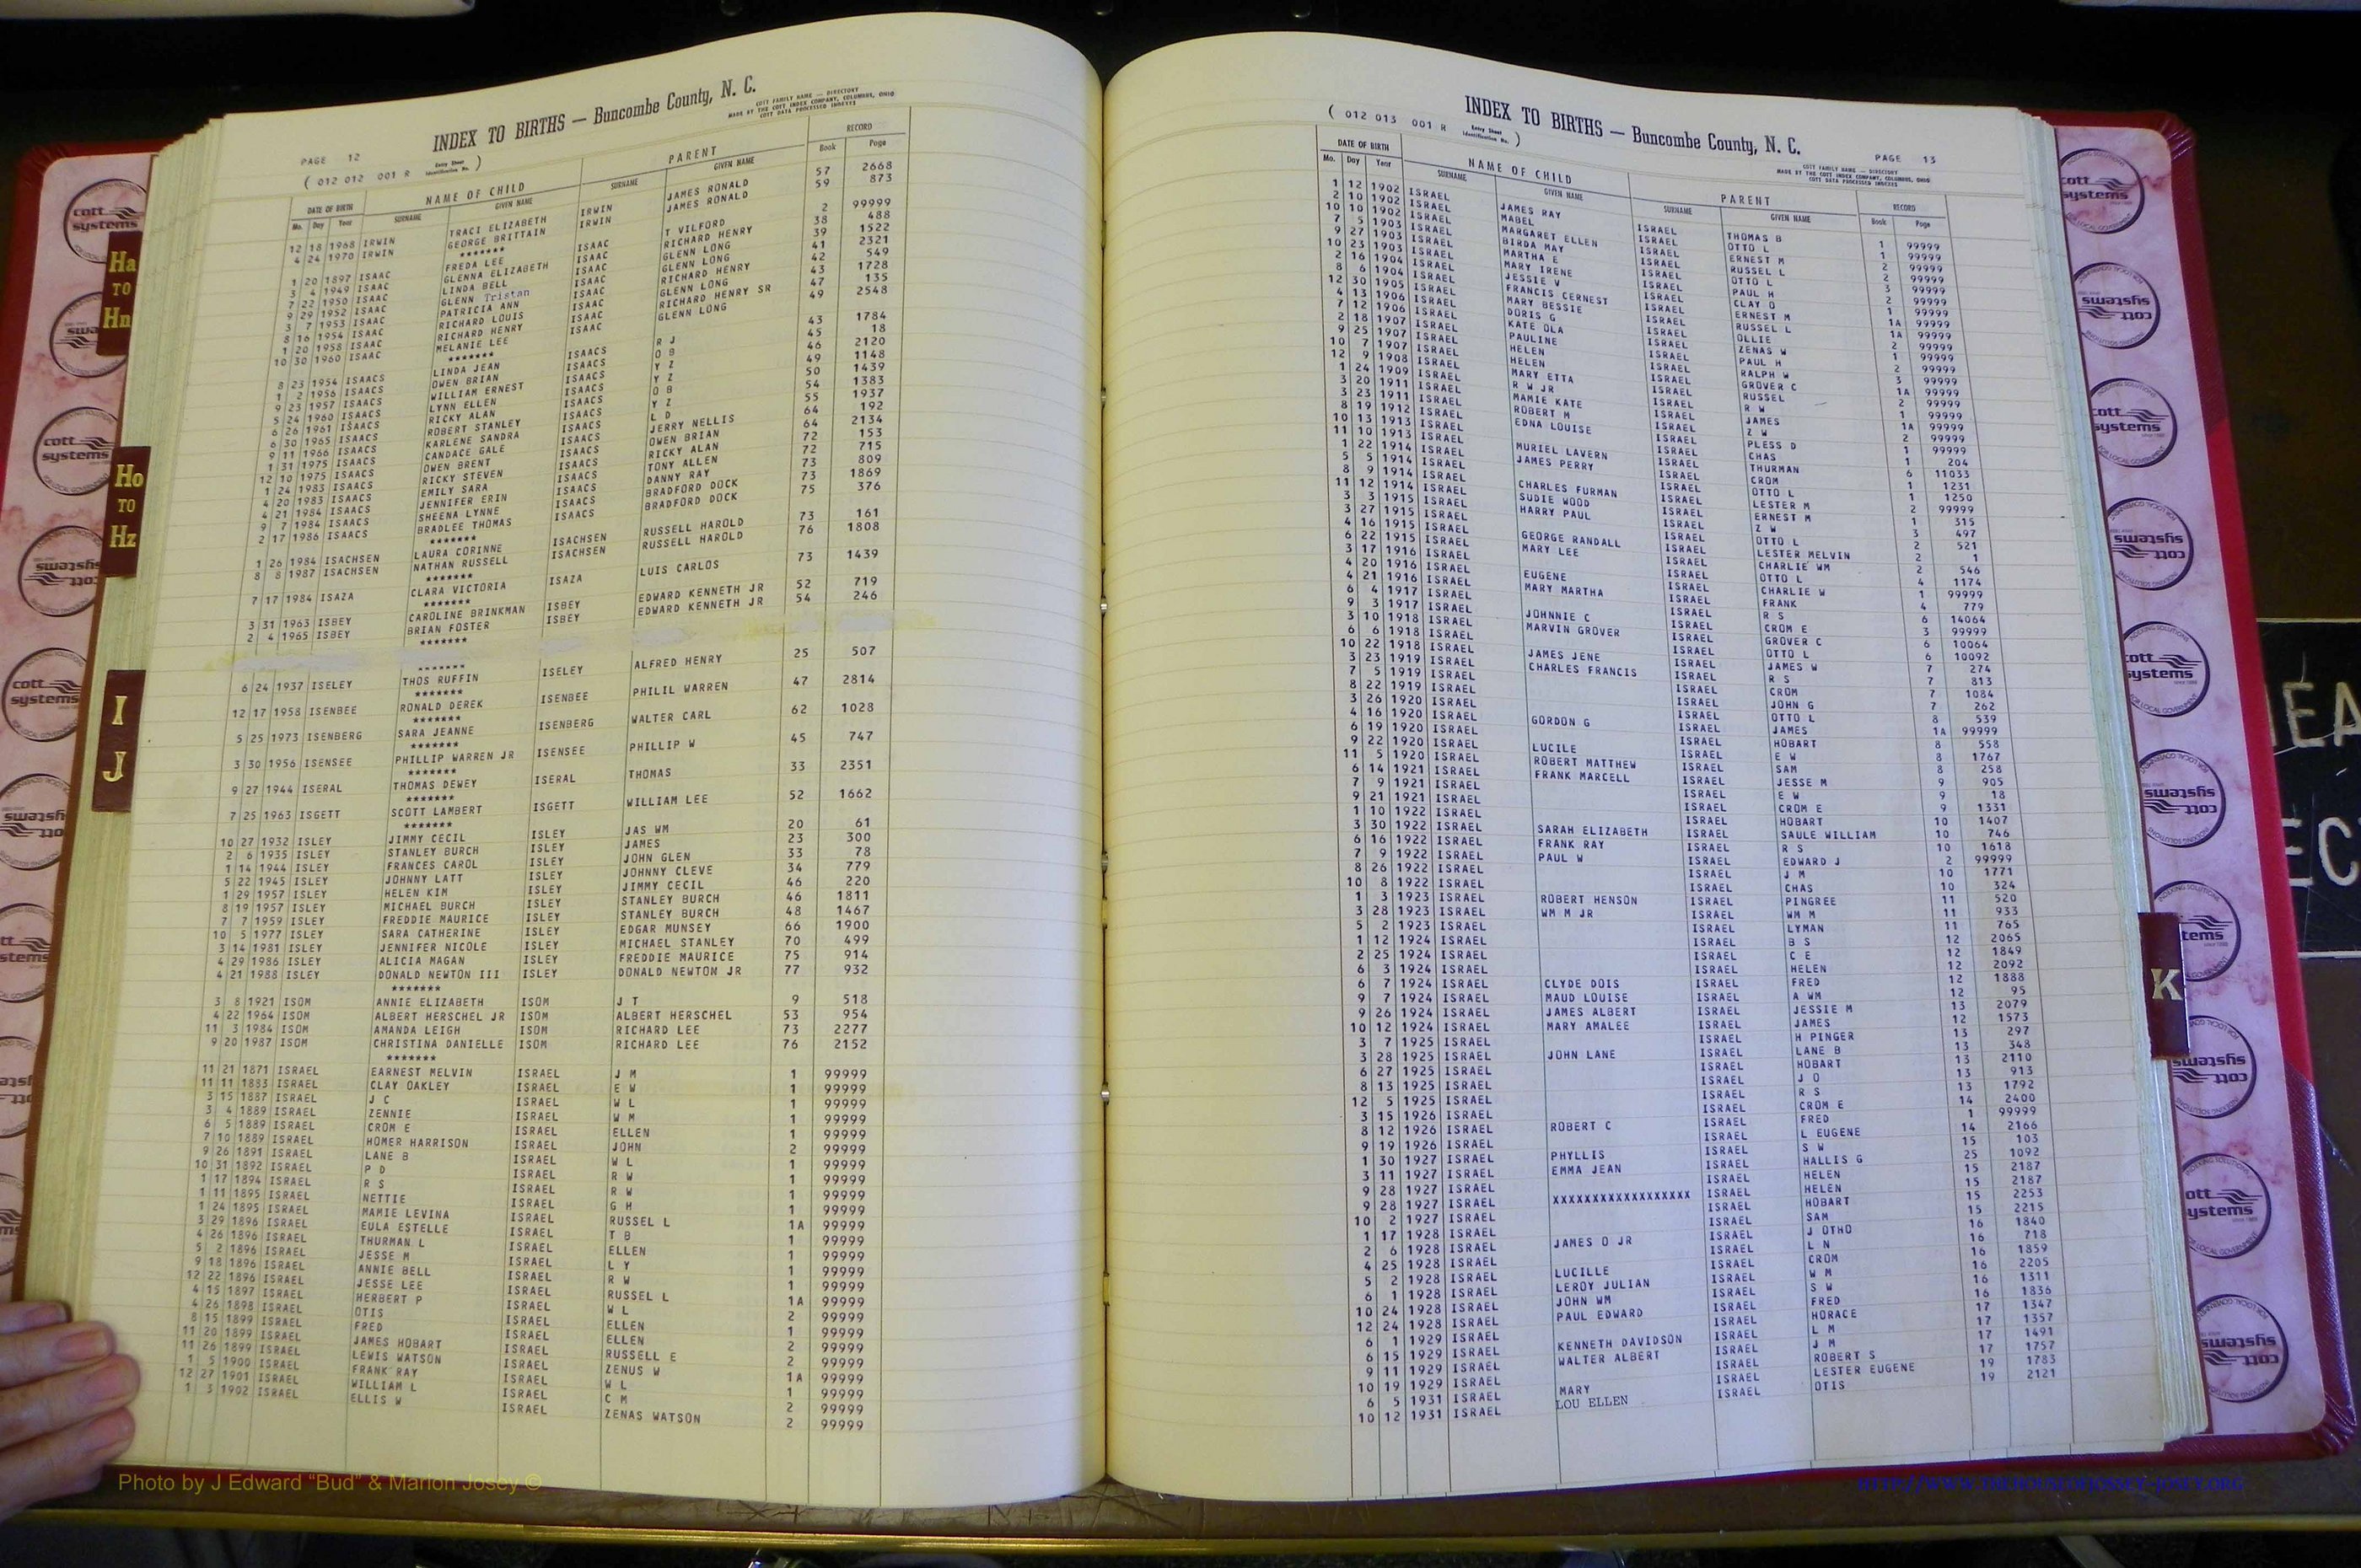 INDEX TO BIRTHS — Buncombe County, N. C.
COTT FAMILY NAME — DIRECTORY
MADE BY THE COTT INDEX COMPANY, COLUMBUS, OHIO
COTT DATA PROCESSED INDEXES
PAGE 12
( 012 012 001 R Entry Sheet Identification No. )
DATE OF BIRTH NAME OF CHILD PARENT RECORD
Mo. Day Year SURNAME GIVEN NAME SURNAME GIVEN NAME Book Page
12 18 1968 IRWIN TRACI ELIZABETH IRWIN JAMES RONALD 57 2668
4 24 1970 IRWIN GEORGE BRITTAIN IRWIN JAMES RONALD 59 873
*******
1 20 1897 ISAAC FREDA LEE ISAAC T VILFORD 2 99999
3 4 1949 ISAAC GLENNA ELIZABETH ISAAC RICHARD HENRY 38 488
7 22 1950 ISAAC LINDA BELL ISAAC GLENN LONG 39 1522
9 29 1952 ISAAC GLENN Tristan ISAAC GLENN LONG 41 2321
3 7 1953 ISAAC PATRICIA ANN ISAAC RICHARD HENRY 42 549
8 16 1954 ISAAC RICHARD LOUIS ISAAC GLENN LONG 43 1728
1 20 1958 ISAAC RICHARD HENRY ISAAC RICHARD HENRY SR 47 135
10 30 1960 ISAAC MELANIE LEE ISAAC GLENN LONG 49 2548
*******
8 23 1954 ISAACS LINDA JEAN ISAACS R J 43 1784
1 2 1956 ISAACS OWEN BRIAN ISAACS O B 45 18
9 23 1957 ISAACS WILLIAM ERNEST ISAACS Y Z 46 2120
5 24 1960 ISAACS LYNN ELLEN ISAACS Y Z 49 1148
6 26 1961 ISAACS RICKY ALAN ISAACS O B 50 1439
6 30 1965 ISAACS ROBERT STANLEY ISAACS Y Z 54 1383
9 11 1966 ISAACS KARLENE SANDRA ISAACS L D 55 1937
1 31 1975 ISAACS CANDACE GALE ISAACS JERRY NELLIS 64 192
12 10 1975 ISAACS OWEN BRENT ISAACS OWEN BRIAN 64 2134
1 24 1983 ISAACS RICKY STEVEN ISAACS RICKY ALAN 72 153
4 20 1983 ISAACS EMILY SARA ISAACS TONY ALLEN 72 715
4 21 1984 ISAACS JENNIFER ERIN ISAACS DANNY RAY 73 809
9 7 1984 ISAACS SHEENA LYNNE ISAACS BRADFORD DOCK 73 1869
2 17 1986 ISAACS BRADLEE THOMAS ISAACS BRADFORD DOCK 75 376
*******
1 26 1984 ISACHSEN LAURA CORINNE ISACHSEN RUSSELL HAROLD 73 161
8 8 1987 ISACHSEN NATHAN RUSSELL ISACHSEN RUSSELL HAROLD 76 1808
*******
7 17 1984 ISAZA CLARA VICTORIA ISAZA LUIS CARLOS 73 1439
*******
3 31 1963 ISBEY CAROLINE BRINKMAN ISBEY EDWARD KENNETH JR 52 719
2 4 1965 ISBEY BRIAN FOSTER ISBEY EDWARD KENNETH JR 54 246
*******
*******
6 24 1937 ISELEY THOS RUFFIN ISELEY ALFRED HENRY 25 507
*******
12 17 1958 ISENBEE RONALD DEREK ISENBEE PHILIL WARREN 47 2814
*******
5 25 1973 ISENBERG SARA JEANNE ISENBERG WALTER CARL 62 1028
*******
3 30 1956 ISENSEE PHILLIP WARREN JR ISENSEE PHILLIP W 45 747
*******
9 27 1944 ISERAL THOMAS DEWEY ISERAL THOMAS 33 2351
*******
7 25 1963 ISGETT SCOTT LAMBERT ISGETT WILLIAM LEE 52 1662
*******
10 27 1932 ISLEY JIMMY CECIL ISLEY JAS WM 20 61
2 6 1935 ISLEY STANLEY BURCH ISLEY JAMES 23 300
1 14 1944 ISLEY FRANCES CAROL ISLEY JOHN GLEN 33 78
5 22 1945 ISLEY JOHNNY LATT ISLEY JOHNNY CLEVE 34 779
1 29 1957 ISLEY HELEN KIM ISLEY JIMMY CECIL 46 220
8 19 1957 ISLEY MICHAEL BURCH ISLEY STANLEY BURCH 46 1811
7 7 1959 ISLEY FREDDIE MAURICE ISLEY STANLEY BURCH 48 1467
10 5 1977 ISLEY SARA CATHERINE ISLEY EDGAR MUNSEY 66 1900
3 14 1981 ISLEY JENNIFER NICOLE ISLEY MICHAEL STANLEY 70 499
4 29 1986 ISLEY ALICIA MAGAN ISLEY FREDDIE MAURICE 75 914
4 21 1988 ISLEY DONALD NEWTON III ISLEY DONALD NEWTON JR 77 932
*******
3 8 1921 ISOM ANNIE ELIZABETH ISOM J T 9 518
4 22 1964 ISOM ALBERT HERSCHEL JR ISOM ALBERT HERSCHEL 53 954
11 3 1984 ISOM AMANDA LEIGH ISOM RICHARD LEE 73 2277
9 20 1987 ISOM CHRISTINA DANIELLE ISOM RICHARD LEE 76 2152
*******
11 21 1871 ISRAEL EARNEST MELVIN ISRAEL J M 1 99999
11 11 1883 ISRAEL CLAY OAKLEY ISRAEL E W 1 99999
3 15 1887 ISRAEL J C ISRAEL W L 1 99999
3 4 1889 ISRAEL ZENNIE ISRAEL W M 1 99999
6 5 1889 ISRAEL CROM E ISRAEL ELLEN 1 99999
7 10 1889 ISRAEL HOMER HARRISON ISRAEL JOHN 2 99999
9 26 1891 ISRAEL LANE B ISRAEL W L 1 99999
10 31 1892 ISRAEL P D ISRAEL R W 1 99999
1 17 1894 ISRAEL R S ISRAEL R W 1 99999
1 11 1895 ISRAEL NETTIE ISRAEL G H 1 99999
1 24 1895 ISRAEL MAMIE LEVINA ISRAEL RUSSEL L 1A 99999
3 29 1896 ISRAEL EULA ESTELLE ISRAEL T B 1 99999
4 26 1896 ISRAEL THURMAN L ISRAEL ELLEN 1 99999
5 2 1896 ISRAEL JESSE M ISRAEL L Y 1 99999
9 18 1896 ISRAEL ANNIE BELL ISRAEL R W 1 99999
12 22 1896 ISRAEL JESSE LEE ISRAEL RUSSEL L 1A 99999
4 15 1897 ISRAEL HERBERT P ISRAEL W L 2 99999
4 26 1898 ISRAEL OTIS ISRAEL ELLEN 1 99999
8 15 1899 ISRAEL FRED ISRAEL ELLEN 2 99999
11 20 1899 ISRAEL JAMES HOBART ISRAEL RUSSELL E 2 99999
11 26 1899 ISRAEL LEWIS WATSON ISRAEL ZENUS W 1A 99999
1 5 1900 ISRAEL FRANK RAY ISRAEL W L 1 99999
12 27 1901 ISRAEL WILLIAM L ISRAEL C M 2 99999
1 3 1902 ISRAEL ELLIS W ISRAEL ZENAS WATSON 2 99999
INDEX TO BIRTHS — Buncombe County, N. C.
( 012 013 001 R Entry Sheet Identification No. )
PAGE 13
COTT FAMILY NAME — DIRECTORY
MADE BY THE COTT INDEX COMPANY, COLUMBUS, OHIO
COTT DATA PROCESSED INDEXES
DATE OF BIRTH NAME OF CHILD PARENT RECORD
Mo. Day Year SURNAME GIVEN NAME SURNAME GIVEN NAME Book Page
1 12 1902 ISRAEL
2 10 1902 ISRAEL
10 10 1902 ISRAEL
7 5 1903 ISRAEL
9 27 1903 ISRAEL
10 23 1903 ISRAEL
2 16 1904 ISRAEL
8 6 1904 ISRAEL
12 30 1905 ISRAEL
4 13 1906 ISRAEL
7 12 1906 ISRAEL
2 18 1907 ISRAEL
9 25 1907 ISRAEL
10 7 1907 ISRAEL
12 9 1908 ISRAEL
1 24 1909 ISRAEL
3 20 1911 ISRAEL
3 23 1911 ISRAEL
8 19 1912 ISRAEL
10 13 1913 ISRAEL
11 10 1913 ISRAEL
1 22 1914 ISRAEL
5 5 1914 ISRAEL
8 9 1914 ISRAEL
11 12 1914 ISRAEL
3 3 1915 ISRAEL
3 27 1915 ISRAEL
4 16 1915 ISRAEL
6 22 1915 ISRAEL
3 17 1916 ISRAEL
4 20 1916 ISRAEL
4 21 1916 ISRAEL
6 4 1917 ISRAEL
9 3 1917 ISRAEL
3 10 1918 ISRAEL
6 6 1918 ISRAEL
10 22 1918 ISRAEL
3 23 1919 ISRAEL
7 5 1919 ISRAEL
8 22 1919 ISRAEL
3 26 1920 ISRAEL
4 16 1920 ISRAEL
6 19 1920 ISRAEL
9 22 1920 ISRAEL
11 5 1920 ISRAEL
6 14 1921 ISRAEL
7 9 1921 ISRAEL
9 21 1921 ISRAEL
1 10 1922 ISRAEL
3 30 1922 ISRAEL
6 16 1922 ISRAEL
7 9 1922 ISRAEL
8 26 1922 ISRAEL
10 8 1922 ISRAEL
1 3 1923 ISRAEL
3 28 1923 ISRAEL
5 2 1923 ISRAEL
1 12 1924 ISRAEL
2 25 1924 ISRAEL
6 3 1924 ISRAEL
6 7 1924 ISRAEL
9 7 1924 ISRAEL
9 26 1924 ISRAEL
10 12 1924 ISRAEL
3 7 1925 ISRAEL
3 28 1925 ISRAEL
6 27 1925 ISRAEL
8 13 1925 ISRAEL
12 5 1925 ISRAEL
3 15 1926 ISRAEL
8 12 1926 ISRAEL
9 19 1926 ISRAEL
1 30 1927 ISRAEL
3 11 1927 ISRAEL
9 28 1927 ISRAEL
9 28 1927 ISRAEL
10 2 1927 ISRAEL
1 17 1928 ISRAEL
2 6 1928 ISRAEL
4 25 1928 ISRAEL
5 2 1928 ISRAEL
6 1 1928 ISRAEL
10 24 1928 ISRAEL
12 24 1928 ISRAEL
6 1 1929 ISRAEL
6 15 1929 ISRAEL
9 11 1929 ISRAEL
10 19 1929 ISRAEL
6 5 1931 ISRAEL
10 12 1931 ISRAEL
JAMES RAY
MABEL
MARGARET ELLEN
BIRDA MAY
MARTHA E
MARY IRENE
JESSIE V
FRANCIS CERNEST
MARY BESSIE
DORIS G
KATE OLA
PAULINE
HELEN
HELEN
MARY ETTA
R W JR
MAMIE KATE
ROBERT M
EDNA LOUISE
MURIEL LAVERN
JAMES PERRY
CHARLES FURMAN
SUDIE WOOD
HARRY PAUL
GEORGE RANDALL
MARY LEE
EUGENE
MARY MARTHA
JOHNNIE C
MARVIN GROVER
JAMES JENE
CHARLES FRANCIS
GORDON G
LUCILE
ROBERT MATTHEW
FRANK MARCELL
SARAH ELIZABETH
FRANK RAY
PAUL W
ROBERT HENSON
WM M JR
CLYDE DOIS
MAUD LOUISE
JAMES ALBERT
MARY AMALEE
JOHN LANE
ROBERT C
PHYLLIS
EMMA JEAN
XXXXXXXXXXXXXXXXXX
JAMES O JR
LUCILLE
LEROY JULIAN
JOHN WM
PAUL EDWARD
KENNETH DAVIDSON
WALTER ALBERT
MARY
LOU ELLEN
ISRAEL THOMAS B
ISRAEL OTTO L
ISRAEL ERNEST M
ISRAEL RUSSEL L
ISRAEL OTTO L
ISRAEL PAUL H
ISRAEL CLAY O
ISRAEL ERNEST M
ISRAEL RUSSEL L
ISRAEL OLLIE
ISRAEL ZENAS W
ISRAEL PAUL H
ISRAEL RALPH W
ISRAEL GROVER C
ISRAEL RUSSEL
ISRAEL R W
ISRAEL JAMES
ISRAEL Z W
ISRAEL PLESS D
ISRAEL CHAS
ISRAEL THURMAN
ISRAEL CROM
ISRAEL OTTO L
ISRAEL LESTER M
ISRAEL ERNEST M
ISRAEL Z W
ISRAEL OTTO L
ISRAEL LESTER MELVIN
ISRAEL CHARLIE WM
ISRAEL OTTO L
ISRAEL CHARLIE W
ISRAEL FRANK
ISRAEL R S
ISRAEL CROM E
ISRAEL GROVER C
ISRAEL OTTO L
ISRAEL JAMES W
ISRAEL R S
ISRAEL CROM
ISRAEL JOHN G
ISRAEL OTTO L
ISRAEL JAMES
ISRAEL HOBART
ISRAEL E W
ISRAEL SAM
ISRAEL JESSE M
ISRAEL E W
ISRAEL CROM E
ISRAEL HOBART
ISRAEL SAULE WILLIAM
ISRAEL R S
ISRAEL EDWARD J
ISRAEL J M
ISRAEL CHAS
ISRAEL PINGREE
ISRAEL WM M
ISRAEL LYMAN
ISRAEL B S
ISRAEL C E
ISRAEL HELEN
ISRAEL FRED
ISRAEL A WM
ISRAEL JESSIE M
ISRAEL JAMES
ISRAEL H PINGER
ISRAEL LANE B
ISRAEL HOBART
ISRAEL J O
ISRAEL R S
ISRAEL CROM E
ISRAEL FRED
ISRAEL L EUGENE
ISRAEL S W
ISRAEL HALLIS G
ISRAEL HELEN
ISRAEL HELEN
ISRAEL HOBART
ISRAEL SAM
ISRAEL J OTHO
ISRAEL L N
ISRAEL CROM
ISRAEL W M
ISRAEL S W
ISRAEL FRED
ISRAEL HORACE
ISRAEL L M
ISRAEL J M
ISRAEL ROBERT S
ISRAEL LESTER EUGENE
ISRAEL OTIS
1 99999
1 99999
2 99999
2 99999
3 99999
2 99999
1 99999
1A 99999
1A 99999
2 99999
1 99999
2 99999
3 99999
1A 99999
2 99999
1 99999
1A 99999
2 99999
1 99999
1 204
6 11033
1 1231
1 1250
2 99999
1 315
3 497
2 521
2 1
2 546
4 1174
1 99999
4 779
6 14064
3 99999
6 10064
6 10092
7 274
7 813
7 1084
7 262
8 539
1A 99999
8 558
8 1767
8 258
9 905
9 18
9 1331
10 1407
10 746
10 1618
2 99999
10 1771
10 324
11 520
11 933
11 765
12 2065
12 1849
12 2092
12 1888
12 95
13 2079
12 1573
13 297
13 348
13 2110
13 913
13 1792
14 2400
1 99999
14 2166
15 103
25 1092
15 2187
15 2187
15 2253
15 2215
16 1840
16 718
16 1859
16 2205
16 1311
16 1836
17 1347
17 1357
17 1491
17 1757
19 1783
19 2121
Ha TO Hn
Ho TO Hz
I J
K
cott systems
Photo by J Edward “Bud” & Marion Josey ©
HTTP://WWW.THEHOUSEOFJOSSEY-JOSEY.ORG